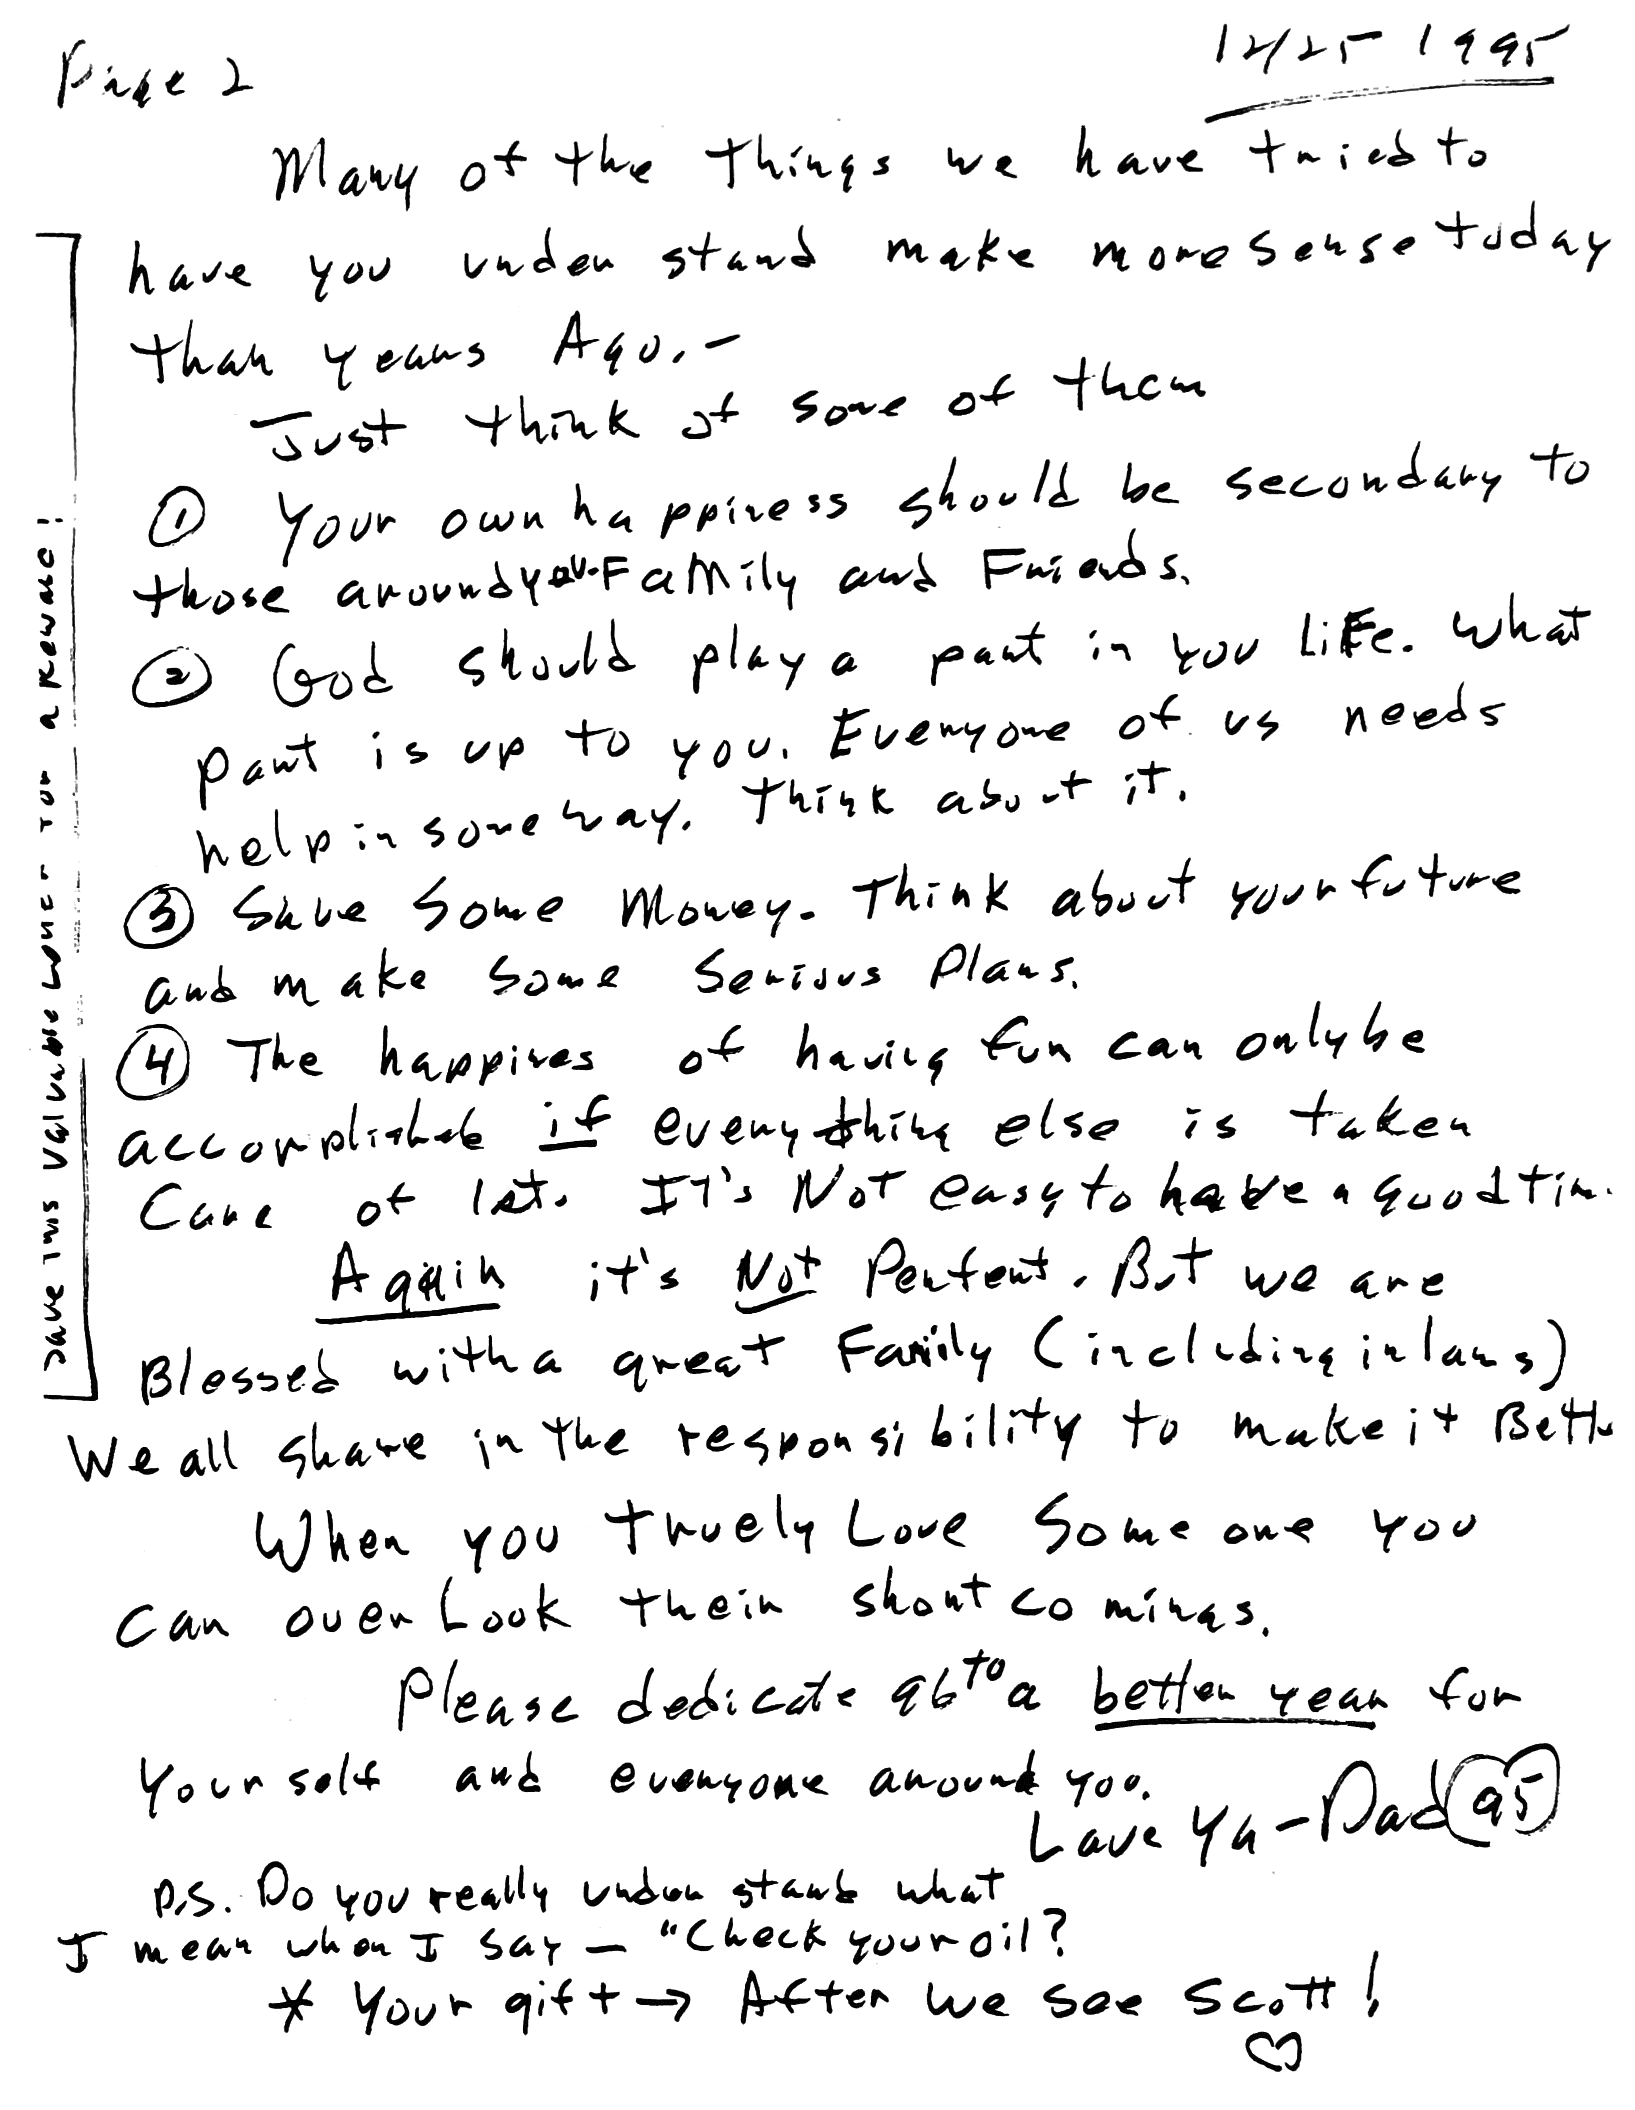 Page 2
12/25 1995
Many of the things we have tried to
have you under stand make more sense today
than years Ago. -
Just think of some of them
① Your own happiness should be secondary to
those around you - Family and Friends.
② God should play a part in you Life. What
part is up to you. Everyone of us needs
help in some way. Think about it.
③ Save Some Money. Think about your future
and make some Serious Plans.
④ The happines of having fun can only be
accomplished if everything else is taken
Care of 1st. IT's Not easy to have a good tim.
Again it's Not Perfect. But we are
Blessed with a great Family (including in laws)
We all share in the responsibility to make it Better
When you truely Love Some one you
can over Look their short comings.
Please dedicate 96 to a better year for
Your self and everyone around you.
Love Ya - Dad 95
P.S. Do you really under stand what
I mean when I say - "Check your oil?
* Your gift → After we see Scott!
♡
Save This Valuable for a Reward!